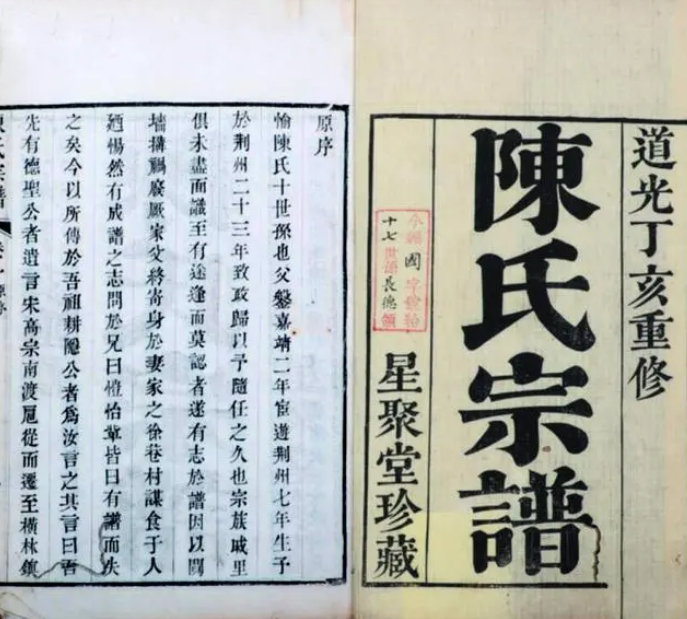 道光丁亥重修
陳氏宗譜
今編國字號給
十七世孫長德領
星聚堂珍藏
原序
愉陳氏十世孫也父鏊嘉靖二年宦遊荆州七年生予
於荆州二十三年致政歸以予隨任之久也宗族戚里
俱未盡而識至有途逢而莫認者遂有志於譜因以鬩
墻搆禍廢厥家父終寄身於妻家之徐巷村謀食于人
廼惕然有成譜之志問於兄曰愷怡輩皆曰有譜而失
之矣今以所傳於吾祖耕隱公者為汝言之其言曰吾
先有德聖公者遺言宋高宗南渡扈從而遷至橫林鎮
陳氏宗譜